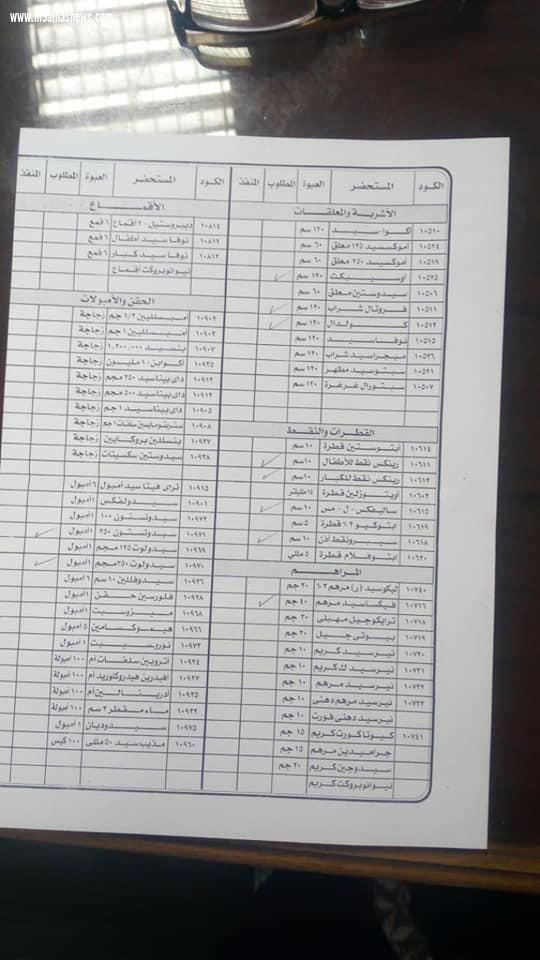 www.misalnasnews.com
الكود المستحضر العبوة المطلوب المنفذ
الأشربة والمعلقات
١٠٥١٠ ١٢٠ سم
١٠٥٢٤ أموكسيد ١٢٥ معلق ٦٠ سم
١٠٥١٩ أموكسيد ٢٥٠ معلق ٦٠ سم
١٠٥٢٥ ١٢٠ سم
١٠٥٠٦ سيدوستين معلق ٦٠ سم
١٠٥١١ فروتال شراب ١٢٠ سم
١٠٥١٢ كولدال ١٢٠ سم
١٠٥١٥ نوفاسيد ١٢٠ سم
١٠٥٢٦ ميجراسيد شراب ١٢٠ سم
١٠٥٢١ سيتوسيد مطهر ١٢٠ سم
١٠٥٠٧ سيتورال غرغرة ١٢٠ سم
القطرات والنقط
١٠٦١٤ أبتوستين قطرة ١٠ سم
١٠٦١١ رينكس نقط للأطفال ١٠ سم
١٠٦١٢ رينكس نقط للكبار ١٠ سم
١٠٦٠٢ أوبتوزلين قطرة
١٠٦١٥ ساليفكس - ل - مس ١٠ سم
١٠٦١٩ ابتوكيو ٢٪ قطرة ٥ سم
١٠٦١٨ سيبرونقط أذن ١٠ سم
١٠٦٢٠ ابتوفلام قطرة ٥ مللي
المراهم
١٠٧٤٠ ليكوسيد (ر) مرهم ٢٪ ٢٠ جم
١٠٧١٦ فيكاسيد مرهم ٤٠ جم
١٠٧١٨ ترايكوجيل مهبلى ٢٠ جم
١٠٧١٩ بيوتى جيل ٢٠ جم
١٠٧٢٠ نيرسيد كريم ١٠ جم
١٠٧٢١ نيرسيد ك كريم ١٠ جم
١٠٧٢٢ نيرسيد مرهم ١٠ جم
١٠٧٢٣ نيرسيد مرهم دهنى ١٠ جم
نيرسيد دهنى فورت ١٠ جم
١٠٧٤١ كيوتاكورت كريم ١٥ جم
جراميدين مرهم ١٥ جم
سيدوجين كريم ٢٠ جم
نيوانوبروكت كريم
الكود المستحضر العبوة المطلوب المنفذ
الأقماع
١٠٨١٤ ديبروستيل ٢٠ أقماع ٦ قمع
١٠٨١٢ نوفاسيد أطفال ٦ قمع
١٠٨١٣ نوفاسيد كبار ٦ قمع
نيوانوبروكت أقماع
الحقن والأمبولات
١٠٩٠٢ امبيسللين ١/٢ جم زجاجة
١٠٩٠٣ امبيسللين ١ جم زجاجة
١٠٩٠٧ بنسيد ١,٢٠٠,٠٠٠ زجاجة
١٠٩٢٥ أكوابن ١٠ مليون زجاجة
١٠٩١٢ داى بيتاسيد ٢٥٠ مجم زجاجة
١٠٩١٣ داى بيتاسيد ٥٠٠ مجم زجاجة
١٠٩٠٥ داى بيتاسيد ١ جم زجاجة
١٠٩٠٨ ستربتومايسين سلفات ١ جم زجاجة
١٠٩٢٧ بنسللين بروكايين زجاجة
١٠٩٢٨ سيدوستين سكسينات زجاجة
١٠٩١٥ تراى فيتا سيد أمبول ٦ أمبول
١٠٩٠١ سيدولفكس ١ أمبول
١٠٩٧٢ سيدوتستون ١٠٠ ١ أمبول
١٠٩٧١ سيدوتستون ٢٥٠ ١ أمبول
١٠٩٦٩ سيدولوت ١٢٥ مجم ١ أمبول
١٠٩٧٠ سيدولوت ٢٥٠ مجم ١ أمبول
١٠٩٢٦ سيدوفللين ١٠ سم ٦ أمبول
١٠٩٣٨ فلورسين حقن ١ أمبول
١٠٩٦٨ ميزوسيبت ١ أمبول
١٠٩٦٦ هيموكسامين ٥ أمبول
١٠٩٧٣ نوروسيبت ١ أمبول
١٠٩٢٤ أتروبين سلفات أم ١٠٠ أمبولة
١٠٩٢٧ أفيدرين هيدروكلوريد أم ١٠٠ أمبولة
١٠٩٢٥ أدرينالين أم ١٠٠ أمبولة
١٠٩٢٢ ماء مقطر ٢ سم ١٠٠ أمبولة
١٠٩٧٥ سيدوديان ١ أمبول
١٠٩٦٠ مذيب سيد ٥٠ مللى ١٠٠ كيس